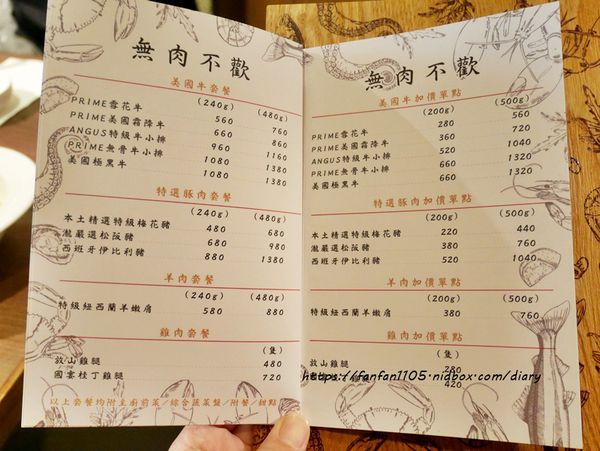 無肉不歡
美國牛套餐
(240g) (480g)
PRIME雪花牛 560 760
PRIME美國霜降牛 660 860
ANGUS特級牛小排 960 1160
PRIME無骨牛小排 1080 1380
美國極黑牛 1080 1380
特選豚肉套餐
(240g) (480g)
本土精選特級梅花豬 480 680
瀧嚴選松阪豬 680 980
西班牙伊比利豬 880 1380
羊肉套餐
(240g) (480g)
特級紐西蘭羊嫩肩 580 880
雞肉套餐
(隻)
放山雞腿 480
國宴桂丁雞腿 720
以上套餐均附主廚前菜/綜合蔬菜盤/附餐/甜點
無肉不歡
美國牛加價單點
(200g) (500g)
PRIME雪花牛 280 560
PRIME美國霜降牛 360 720
ANGUS特級牛小排 520 1040
PRIME無骨牛小排 660 1320
美國極黑牛 660 1320
特選豚肉加價單點
(200g) (500g)
本土精選特級梅花豬 220 440
瀧嚴選松阪豬 380 760
西班牙伊比利豬 520 1040
羊肉加價單點
(200g) (500g)
特級紐西蘭羊嫩肩 380 760
雞肉加價單點
(隻)
放山雞腿 280
https://fanfan1105.nidbox.com/diary
420